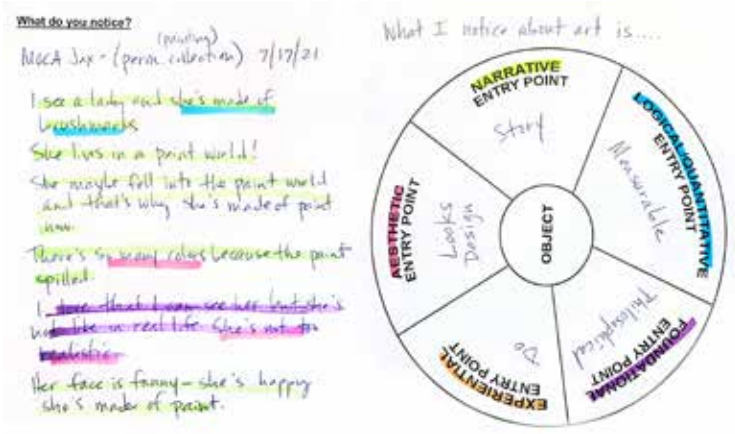 What do you notice?
(painting)
MOCA Jax - (perm collection) 7/17/21
I see a lady and she's made of
brushmarks
She lives in a paint world!
She maybe fell into the paint world
and that's why she's made of paint
now.
There's so many colors because the paint
spilled.
I love that I can see her but she's
not like in real life. She's not too
realistic.
Her face is funny - she's happy
she's made of paint.
What I notice about art is....
NARRATIVE
ENTRY POINT
Story
LOGICAL/QUANTITATIVE
ENTRY POINT
Measurable
FOUNDATIONAL
ENTRY POINT
Philosophical
EXPERIENTIAL
ENTRY POINT
Do
AESTHETIC
ENTRY POINT
Looks
Design
OBJECT